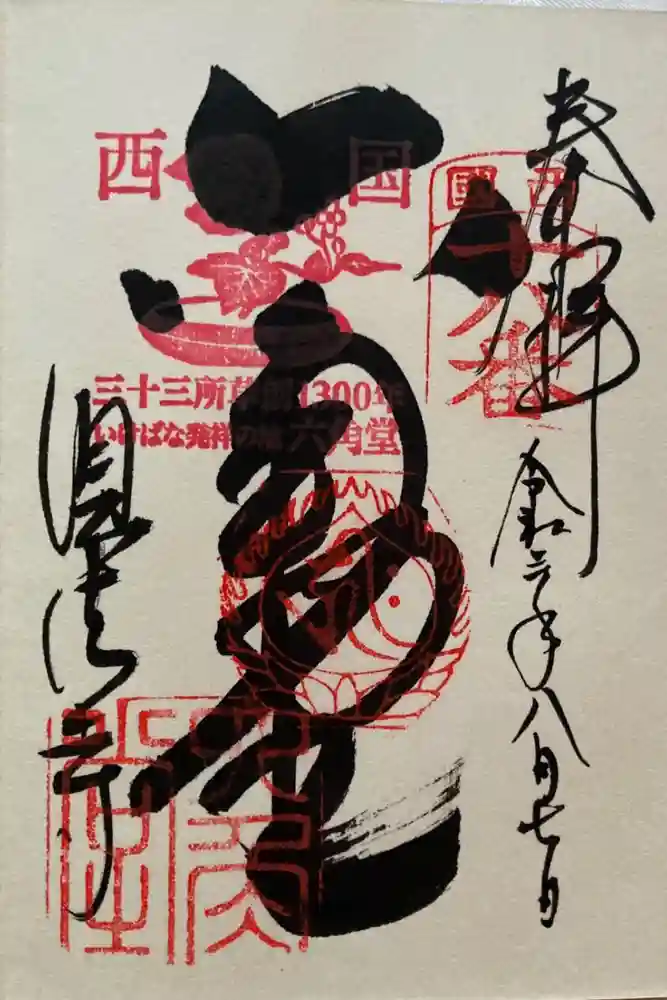 奉拝
西國
十八番
令和二年八月七日
西国
三十三所草創1300年
いけばな発祥の地 六角堂
六角堂
頂法寺